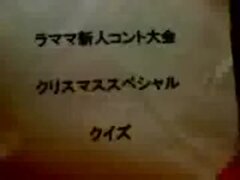 ラママ新人コント大会
クリスマススペシャル
クイズ